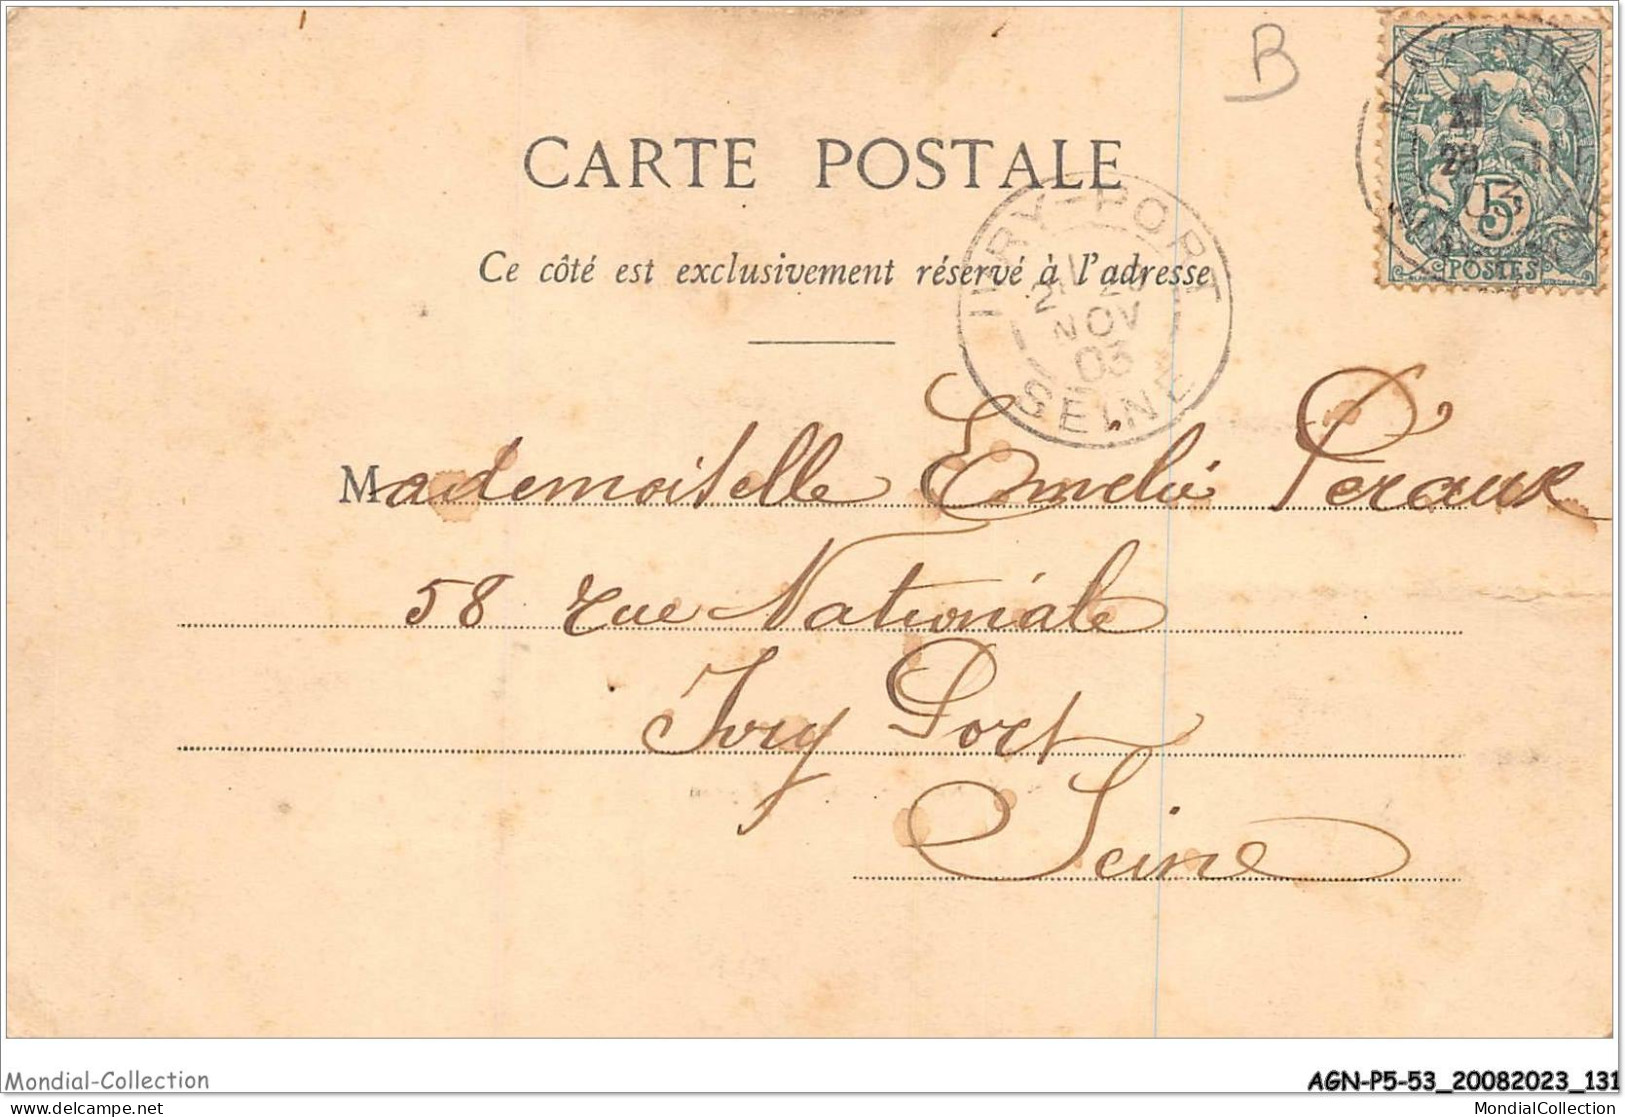 B
CARTE POSTALE
Ce côté est exclusivement réservé à l'adresse
IVRY-PORT
NOV
03
SEINE
28 -11
03
5
POSTES
Mademoiselle Emelie Peraux
58 rue Nationale
Ivry Port
Seine
Mondial-Collection
AGN-P5-53_20082023_131
delcampe.net
MondialCollection